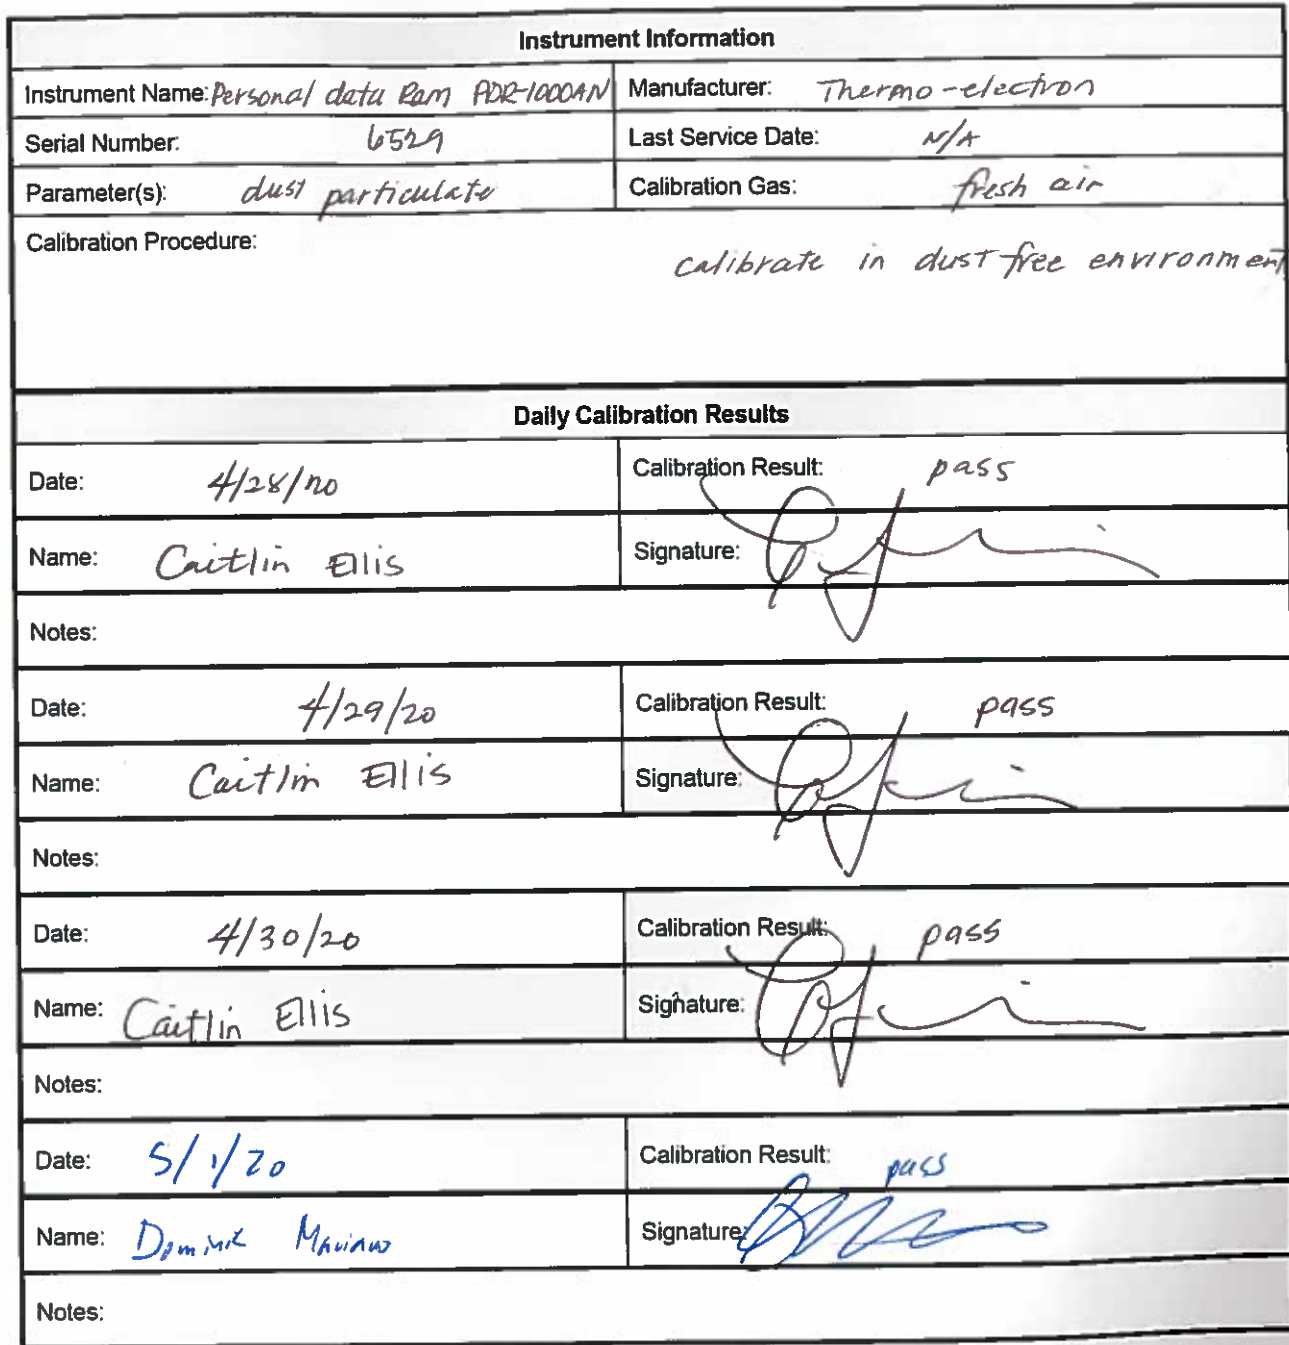 Instrument Information
Instrument Name: Personal data Ram PDR-1000AN Manufacturer: Thermo-electron
Serial Number: 6529 Last Service Date: N/A
Parameter(s): dust particulate Calibration Gas: fresh air
Calibration Procedure:
calibrate in dust free environment
Daily Calibration Results
Date: 4/28/20 Calibration Result: pass
Name: Caitlin Ellis Signature:
Notes:
Date: 4/29/20 Calibration Result: pass
Name: Caitlin Ellis Signature:
Notes:
Date: 4/30/20 Calibration Result: pass
Name: Caitlin Ellis Signature:
Notes:
Date: 5/1/20 Calibration Result: pass
Name: Dominik Signature:
Notes: